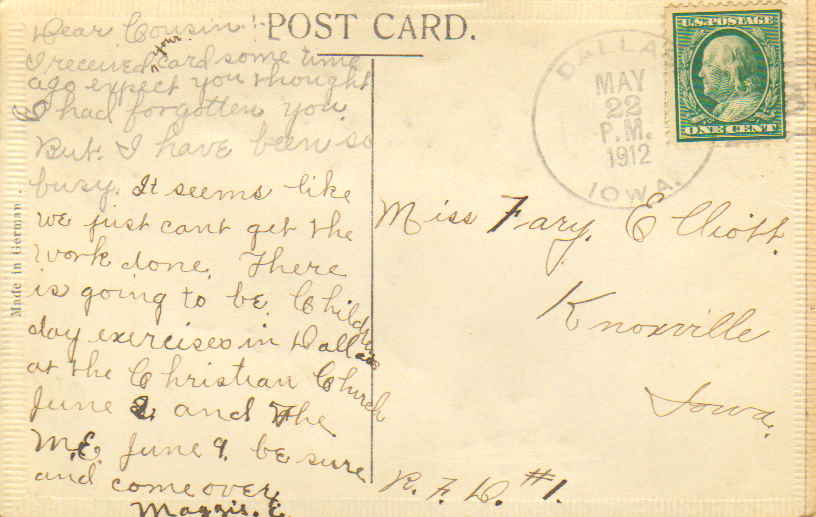 POST CARD.
Dear Cousin!
I received your card some time
ago expect you thought
I had forgotten you.
But I have been so
busy. It seems like
we just cant get the
work done. There
is going to be Childrens
day exercises in Dallas
at the Christian Church
June 2, and the
M.E. June 9. be sure
and come over
Maggie. E.
Made in German
U.S. POSTAGE
ONE CENT
DALLAS
MAY
22
P.M.
1912
IOWA.
Miss Fary. Elliott.
Knoxville
Iowa.
R. F. D. #1.